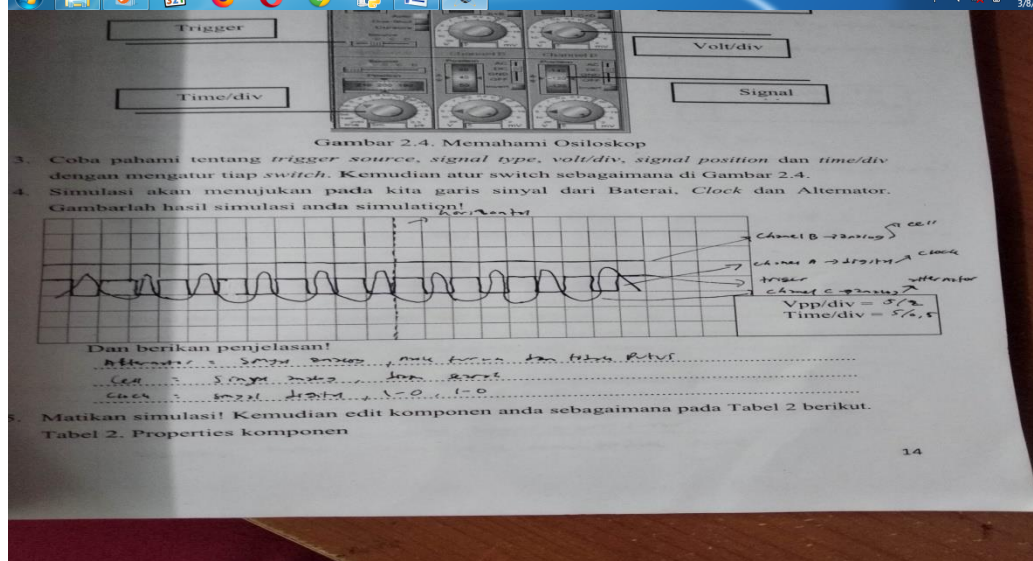 3/8/
Trigger
Volt/div
Time/div
Signal
Gambar 2.4. Memahami Osiloskop
3. Coba pahami tentang trigger source, signal type, volt/div, signal position dan time/div
dengan mengatur tiap switch. Kemudian atur switch sebagaimana di Gambar 2.4.
4. Simulasi akan menujukan pada kita garis sinyal dari Baterai, Clock dan Alternator.
Gambarlah hasil simulasi anda simulation!
horizontal
chanel B → analog cell
chanel A → digital clock
triger
chanel C → alternator
Vpp/div = 5/2
Time/div = 5/0,5
Dan berikan penjelasan!
Alternator : sinyal analog, naik turun dan tidak putus
Cell : sinyal analog,
Clock : sinyal digital, 1-0, 1-0
5. Matikan simulasi! Kemudian edit komponen anda sebagaimana pada Tabel 2 berikut.
Tabel 2. Properties komponen
14